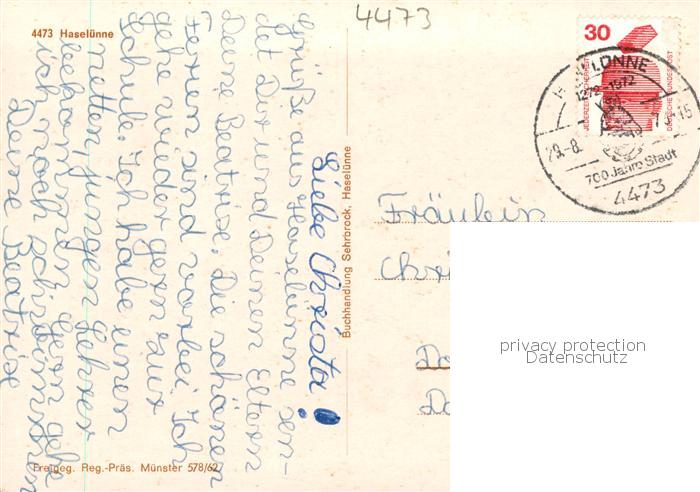 4473
4473 Haselünne
Liebe Christa!
Grüße aus Haselünne sen-
det Dir und Deinen Eltern
Deine Beatrise. Die schönen
Ferien sind vorbei. Ich
gehe wieder gern zur
Schule. Ich habe einen
netten, jungen Lehrer
bekommen. Gern gehe
ich noch schwimmen
Deine Beatrise
Freigeg. Reg.-Präs. Münster 578/62
Buchhandlung Sehrbrock, Haselünne
30
JEDERZEIT SICHERHEIT
DEUTSCHE BUNDESPOST
HASELÜNNE
1272-1972
700 Jahre Stadt
4473
Fräulein
Chri
privacy protection
Datenschutz